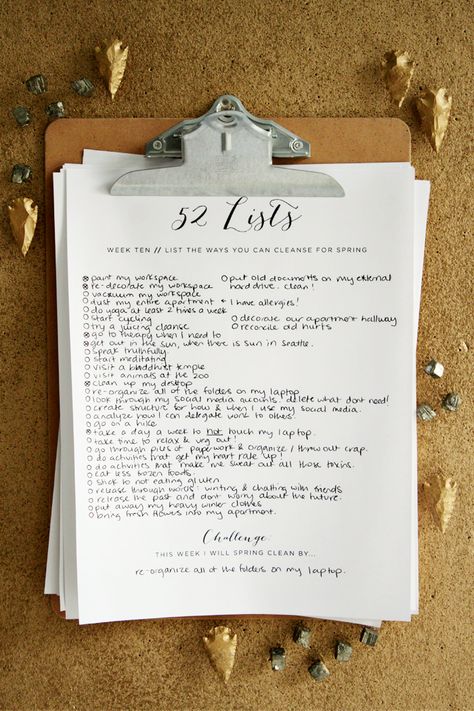 52 Lists
WEEK TEN // LIST THE WAYS YOU CAN CLEANSE FOR SPRING
paint my workspace
re-decorate my workspace
vaccuum my workspace
dust my entire apartment ← I have allergies!
do yoga at least 2 times a week
start cycling
try a juicing cleanse
go to therapy when I need to
get out in the sun, when there is sun in Seattle.
speak truthfully
start meditating
visit a buddhist temple
visit animals at the zoo
clean up my desktop
re-organize all of the folders on my laptop
look through my social media accounts. delete what I don't need!
create structure for how & when I use my social media.
analyze how I can delegate work to others.
go on a hike
take a day a week to not touch my laptop.
take time to relax & veg out!
go through piles of paperwork & organize / throw out crap.
do activities that get my heart rate up!
do activities that make me sweat out all those toxins.
eat less frozen foods.
stick to not eating gluten
release through words: writing & chatting with friends
release the past and dont worry about the future.
put away my heavy winter clothes
bring fresh flowers into my apartment.
put old documents on my external
hard drive. clean!
decorate our apartment hallway
reconcile old hurts
Challenge:
THIS WEEK I WILL SPRING CLEAN BY...
re-organize all of the folders on my laptop.